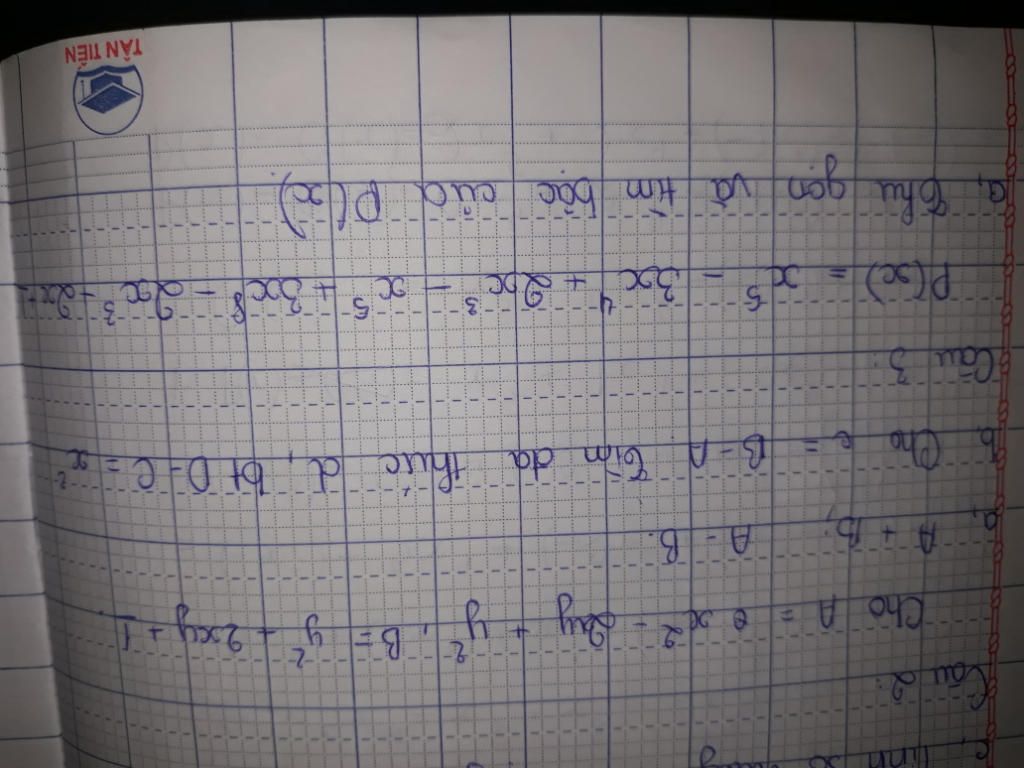 c, Tính
Câu 2:
Cho A = x² - 2xy + y², B = y² + 2xy + 1.
a, A + B; A - B.
b, Cho c = B - A. Tìm đa thức d, bt D - C = x²
Câu 3:
P(x) = x⁵ - 3x⁴ + 2x³ - x⁵ + 3x⁸ - 2x³ + 2x +
a, Thu gọn và tìm bậc của P(x).
TÂN TIẾN